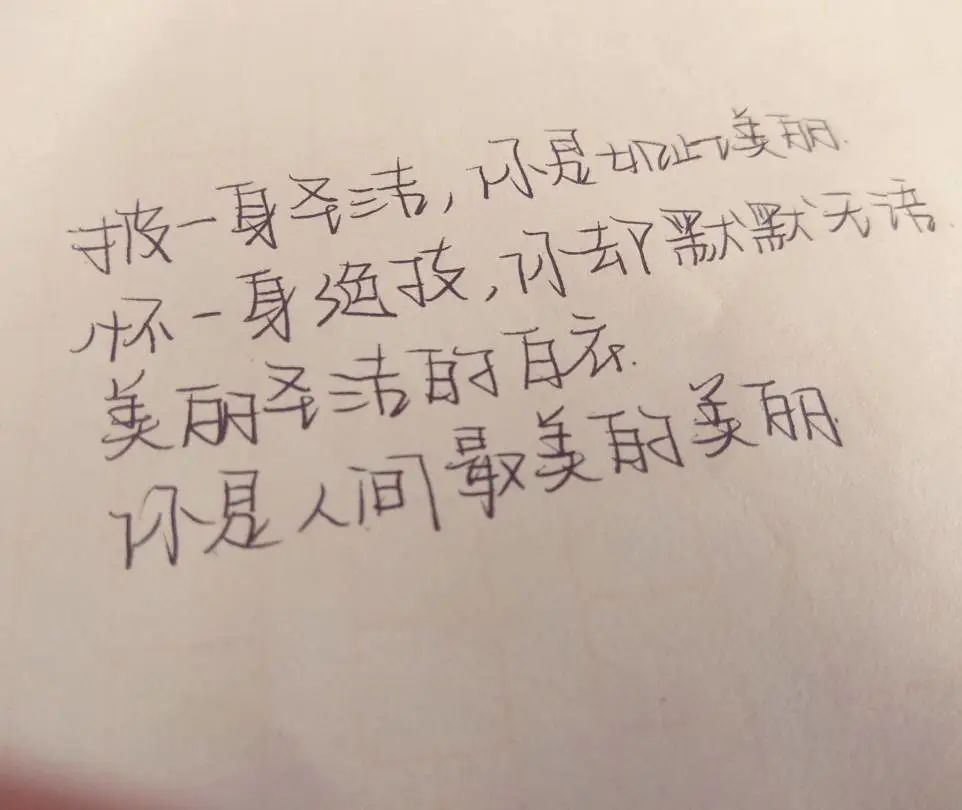 披一身圣洁,你是如此美丽.
怀一身绝技,你却默默无语.
美丽圣洁的白衣.
你是人间最美的美丽.